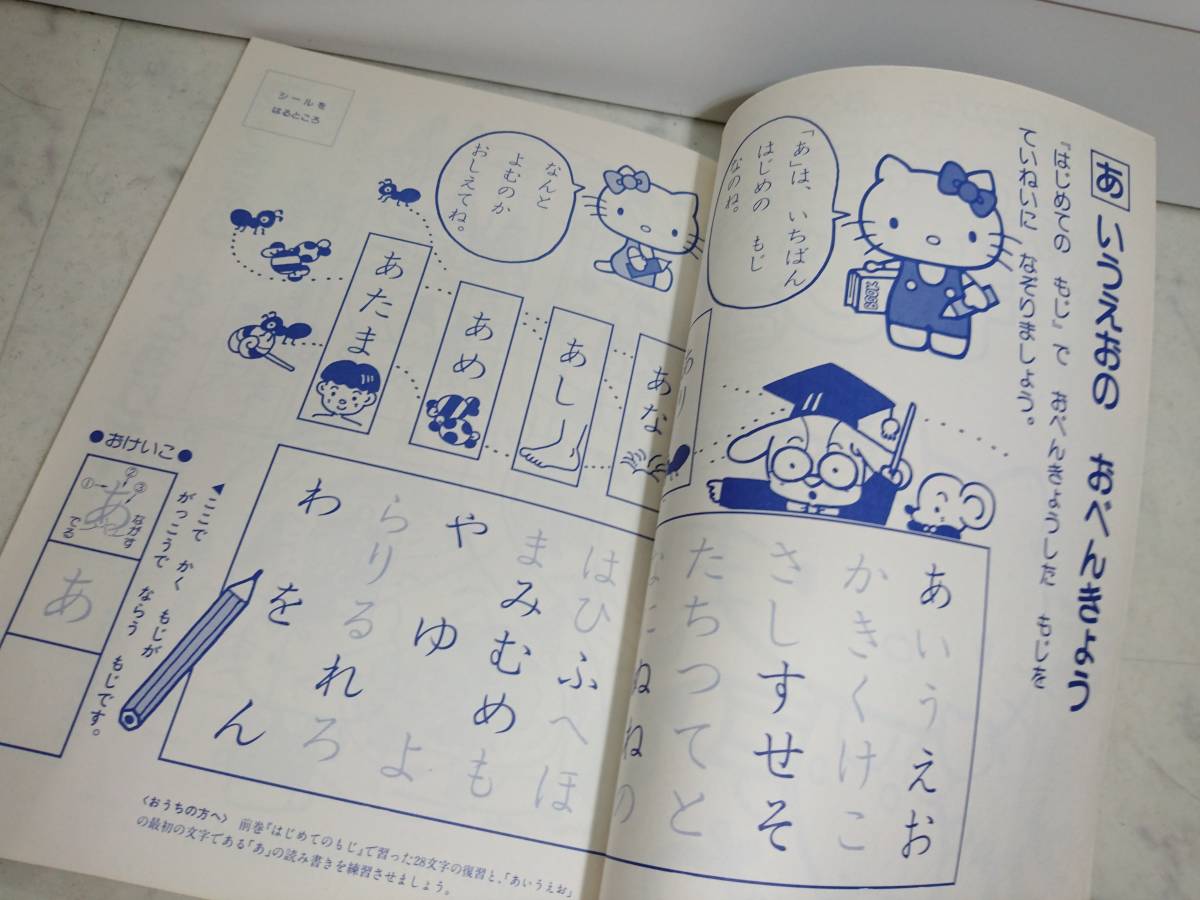 あいうえおの おべんきょう
『はじめての もじ』で おべんきょうした もじを
ていねいに なぞりましょう。
「あ」は、いちばん
はじめの もじ
なのね。
なんと
よむのか
おしえてね。
シールを
はるところ
あな
あし
あめ
あたま
あいうえお
かきくけこ
さしすせそ
たちつてと
なにぬねの
はひふへほ
まみむめも
やゆよ
らりるれろ
わをん
▼ここで かく もじが
がっこうで ならう もじです。
●おけいこ●
①②③
あ
ながす
でる
あ
〈おうちの方へ〉 前巻『はじめてのもじ』で習った28文字の復習と、「あいうえお」
の最初の文字である「あ」の読み書きを練習させましょう。